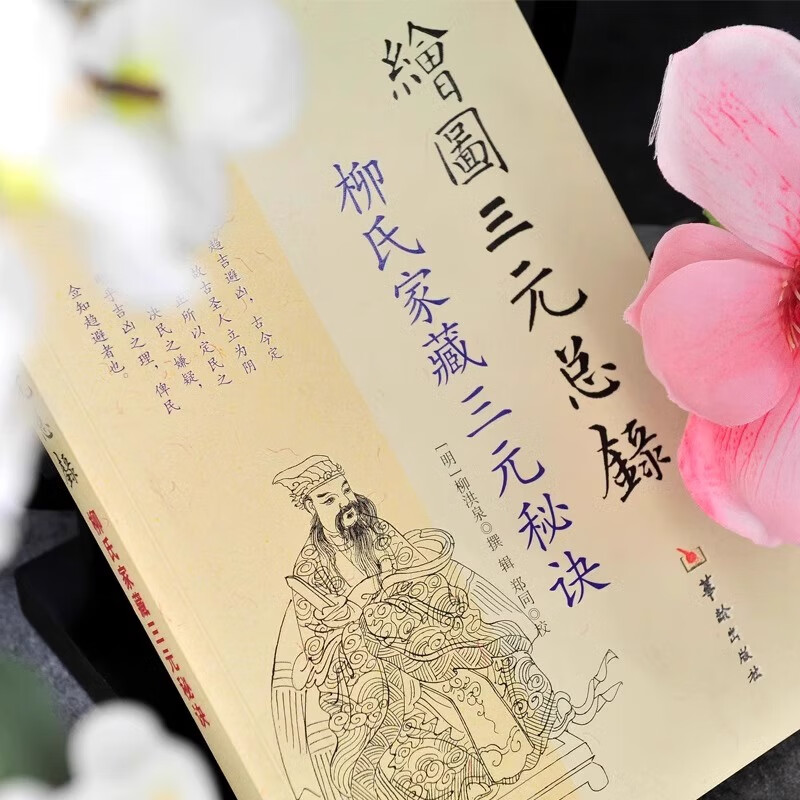 繪圖三元总錄
柳氏家藏三元秘诀
[明]柳洪泉◎撰辑 郑同◎校
華龄出版社
趋吉避凶,古今定
故古圣人立为阴
所以定民之
决民之嫌疑;
吉凶之理,俾民
佥知趋避者也。
总錄
柳氏家藏三元秘诀